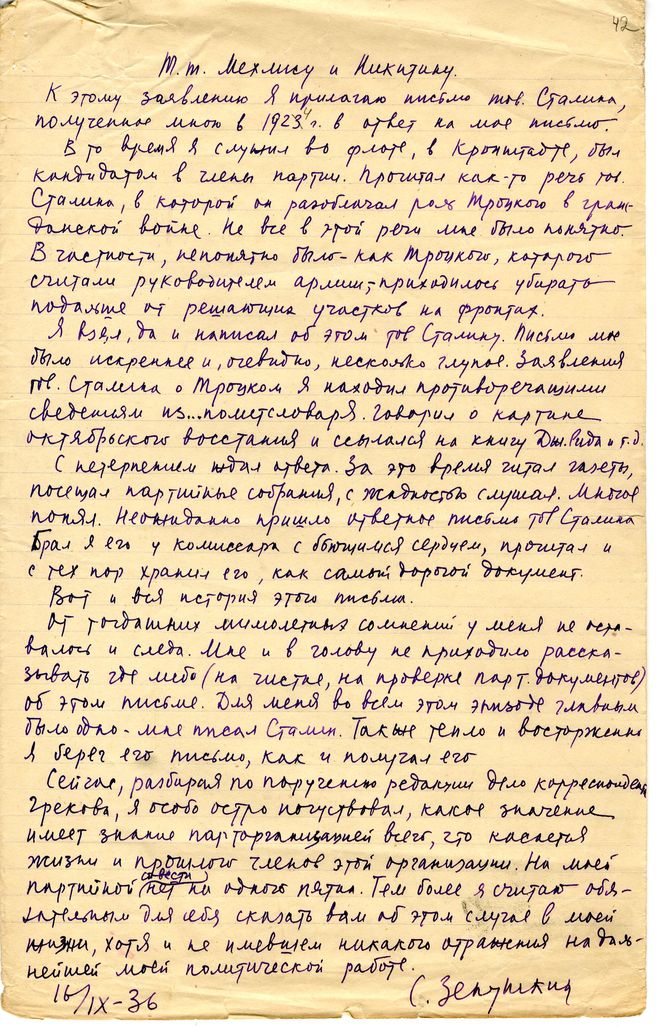 42
Т.т. Мехлису и Никитину.
К этому заявлению я прилагаю письмо тов. Сталина,
полученное мною в 1924 г. в ответ на мое письмо.
В то время я служил во флоте, в Кронштадте, был
кандидатом в члены партии. Прочитал как-то речь тов.
Сталина, в которой он разоблачал роль Троцкого в граж-
данской войне. Не все в этой речи мне было понятно.
В частности, непонятно было - как Троцкого, которого
считали руководителем армии, - приходилось убирать
подальше от решающих участков на фронтах.
Я взял, да и написал об этом тов Сталину. Письмо мое
было искреннее и, очевидно, несколько глупое. Заявления
тов. Сталина о Троцком я находил противоречащими
сведениям из... политсловаря. Говорил о картине
октябрьского восстания и ссылался на книгу Дж. Рида и т.д.
С нетерпением ждал ответа. За это время читал газеты,
посещал партийные собрания, с жадностью слушал. Многое
понял. Неожиданно пришло ответное письмо тов Сталина
Брал я его у комиссара с бьющимся сердцем, прочитал и
с тех пор хранил его, как самый дорогой документ.
Вот и вся история этого письма.
От тогдашних мимолетных сомнений у меня не оста-
валось и следа. Мне и в голову не приходило расска-
зывать где либо (на чистке, на проверке парт. документов)
об этом письме. Для меня во всем этом эпизоде главным
было одно - мне писал Сталин. Также тепло и восторженно
я берег его письмо, как и получал его
Сейчас, разбирая по поручению редакции дело корреспондента
Грекова, я особо остро почувствовал, какое значение
имеет знание парторганизацией всего, что касается
жизни и прошлого членов этой организации. На моей
партийной совести нет ни одного пятна. Тем более я считаю обя-
зательным для себя сказать вам об этом случае в моей
жизни, хотя и не имевшем никакого отражения на даль-
нейшей моей политической работе.
16/IX-36 С.